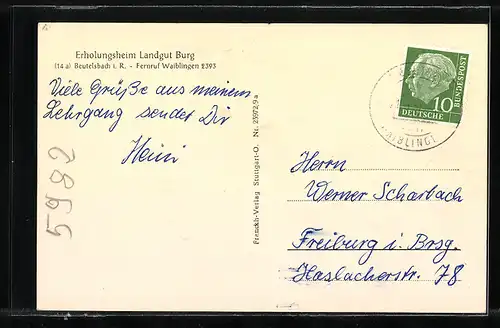 Erholungsheim Landgut Burg
(14 a) Beutelsbach i. R. - Fernruf Waiblingen 2393
Viele Grüße aus meinem
Lehrgang sendet Dir
Heini
5982
Franckh-Verlag Stuttgart-O. Nr. 25972/9a
10
DEUTSCHE
BUNDESPOST
WAIBLINGEN
Herrn
Werner Scharbach
Freiburg i. Brsg.
Haslacherstr. 78